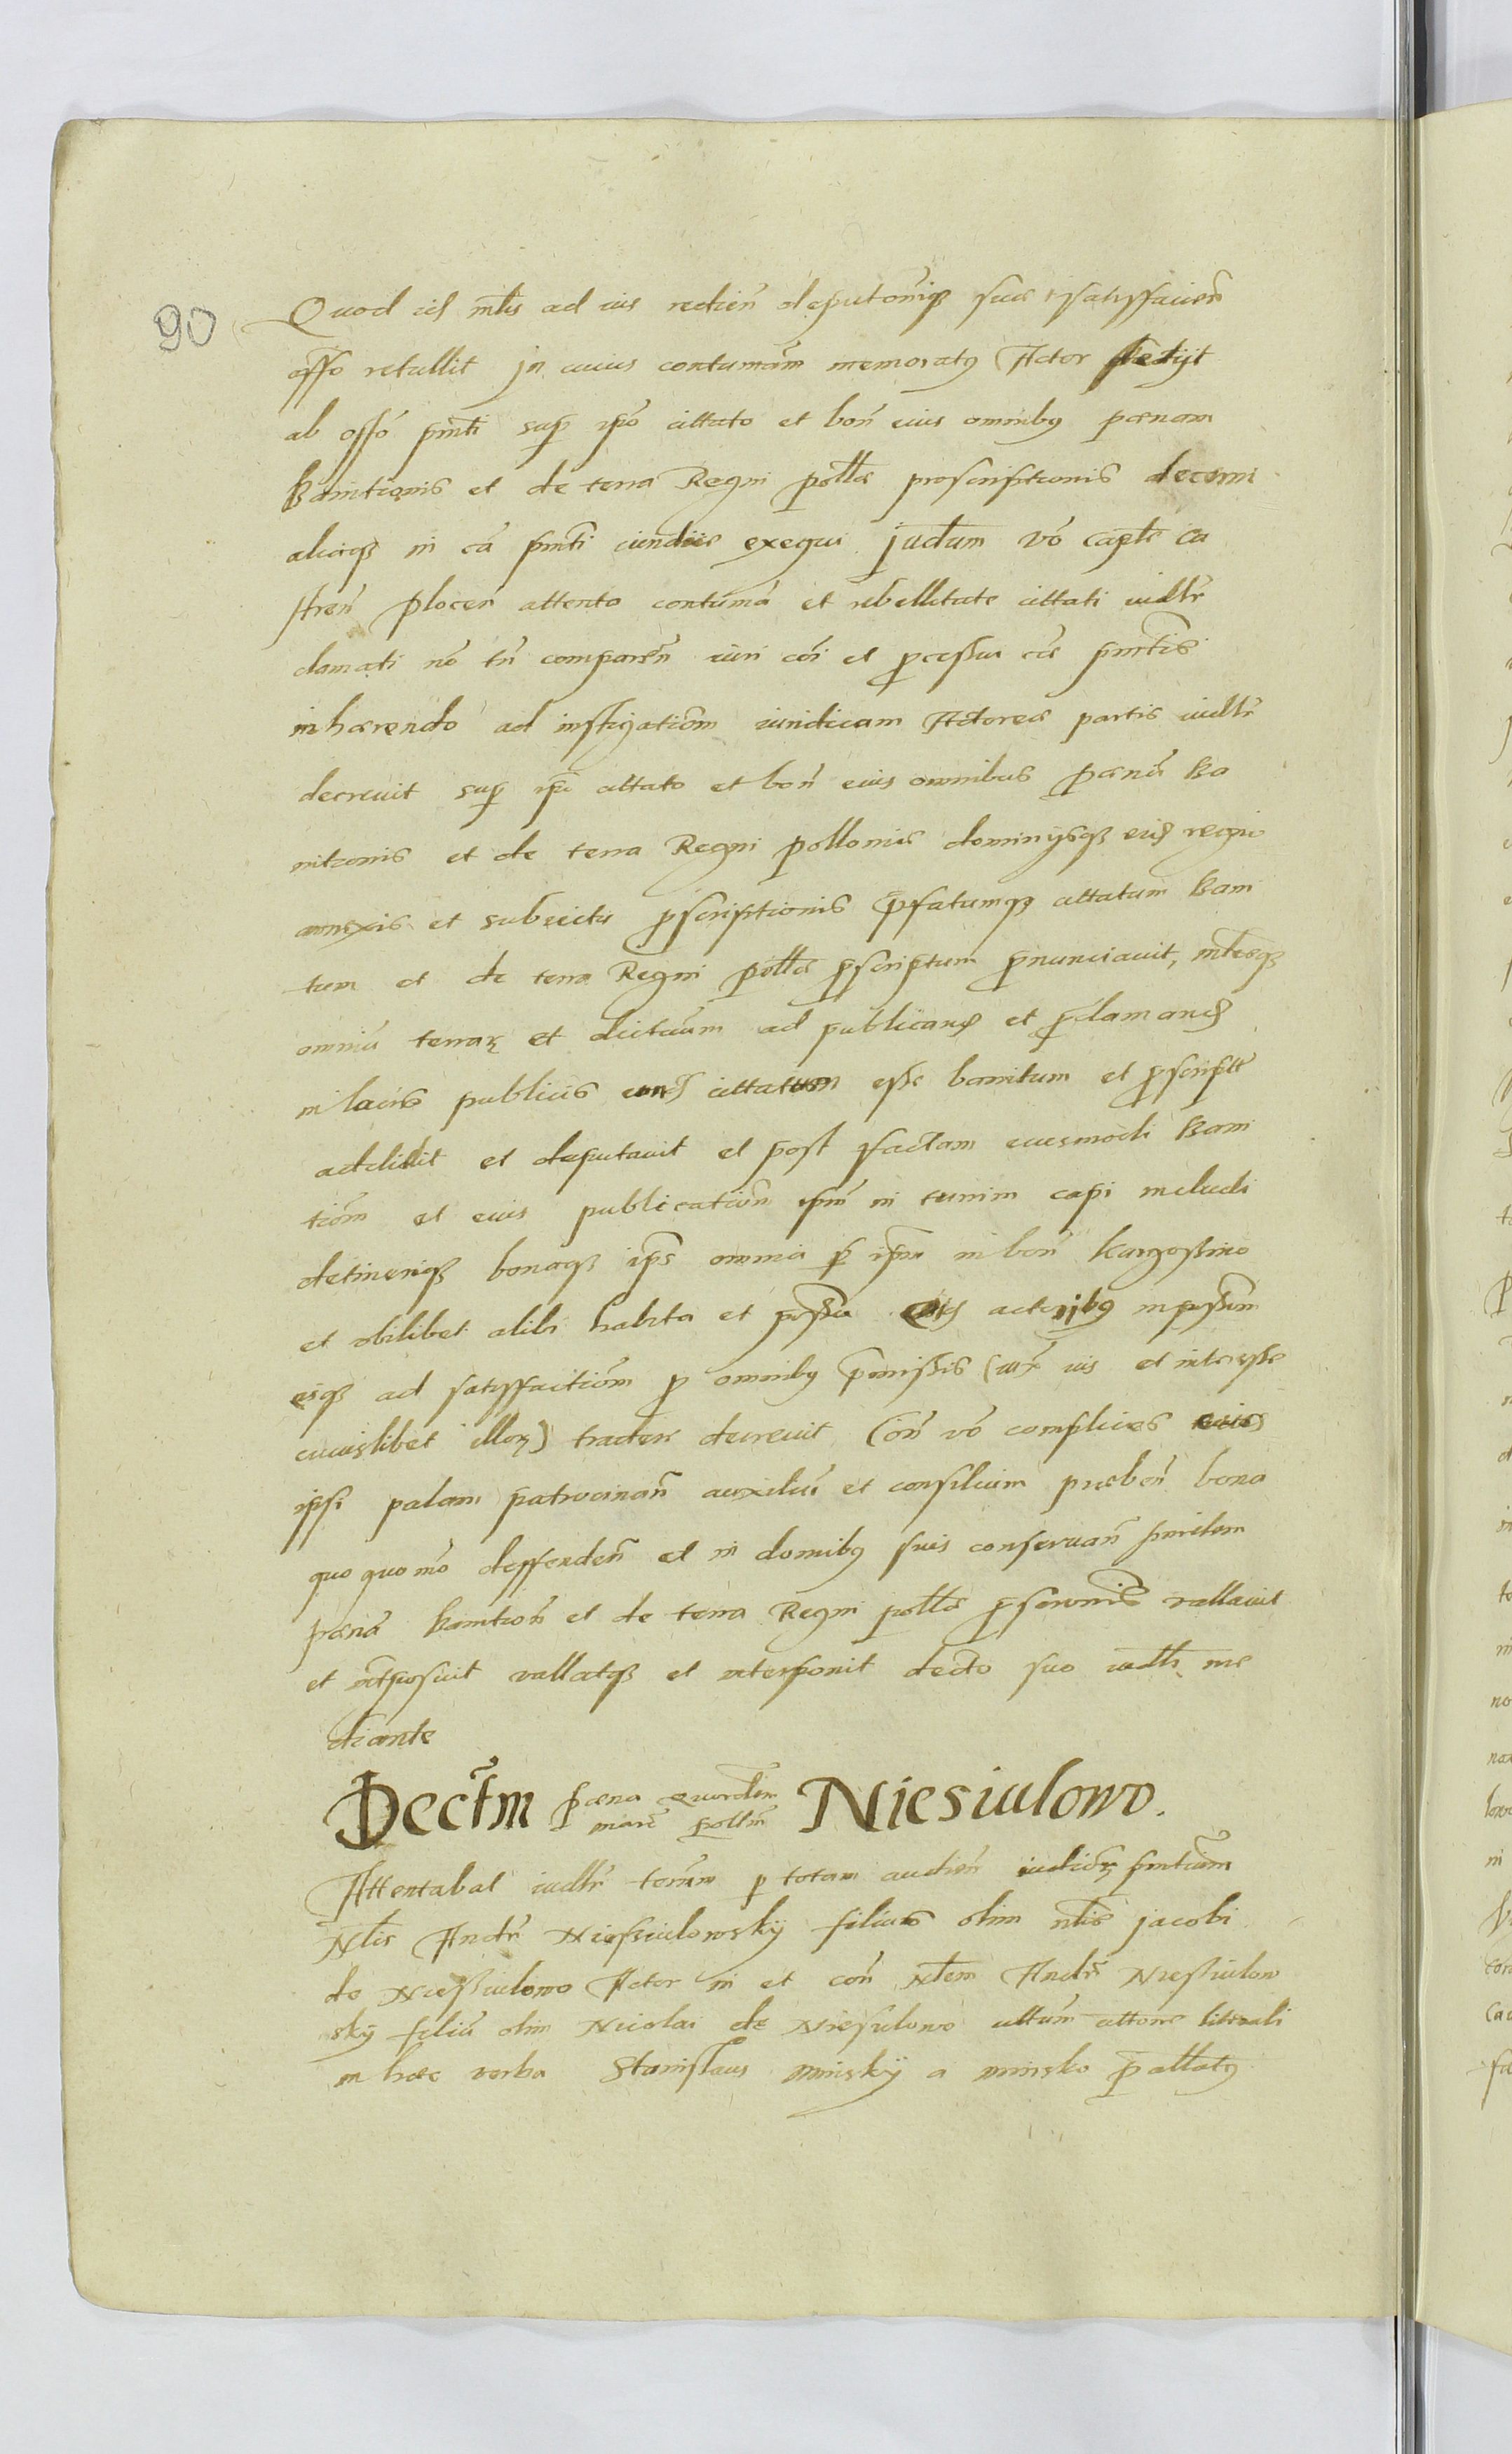 90
Quod ids mlis ad ius redien deputonisq suae satisffacien
offo retullit in cuius contumam memoratg Actor petijt
ab offo pnti sup ipo cittato et bon eius omnibg paenam
Banitionis et de terra Regni polla proscriptionis decerni
aliaq in ca pnti iuridice exequi judtum vo capte Ca
stren plocen attento contuma et rebellitate cittati iudltr
clamati no tn comparen iuri coi et pcessui cae pntis
inhaerendo ad instigationm iuridicam Actorea partis iudltr
decreuit sup ipo cittato et bon eius omnibus paena Ba
nitionis et de terra Regni polloniae dominysq eids regno
annexis et subiectis pscriptionis pfatumq cittatum Bani
tum et de terra Regni polla pscriptum pnunciauit, mlesq
omniu terrar et dictuum ad publicands et pclamands
in locis publicis eunds cittatum esse banitum et pscriptu
addidit et deputauit et post factam euismodi Bani
tiom et eius publication ipm in turrim capi includi
detineriq bonaq ips omnia p ipm in bon kargossino
et vbilibet alibi habita et possa eids actoribg in possm
eisq ad satisffactiom p omnibg pmissis (iux ius et interesse
cuiuslibet illor) tradere decreuit (on vo complices eius
ipsi palam patrocinan auxiliu et consilium praeben bona
quoquo mo deffenden et in domibg suis conseruan similem
paena banition et de terra Regni polla pscronis vallauit
et intposuit vallatq et interponit decto suo iudltr me
diante
Dectm paena quorden marc pollm Niesiulowo.
Attentabat iudltr termm p totam audien iudior pntium
Nlis Andr Niessiulowskij filius olim nlis jacobi
de Niessiulowo Actor in et con nlem Andr Niessiulow
skij filiu olim Nicolai de Niesiulowo cittum cittone litterali
in haec verba Stanislaus Minskij a minsko pallatg